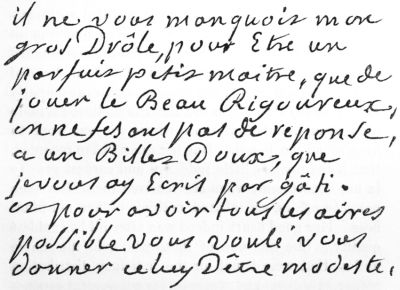 il ne vous manquois mon
gros Drôle, pour Etre un
parfuis petis maitre, que de
jouer le Beau Rigoureux,
en ne fesant pas de reponse,
a un Billes Doux, que
jevous ay Ecris par gâti.
es pour avoir tous les aires
possible vous voulé vous
donner celuy D'être modeste.